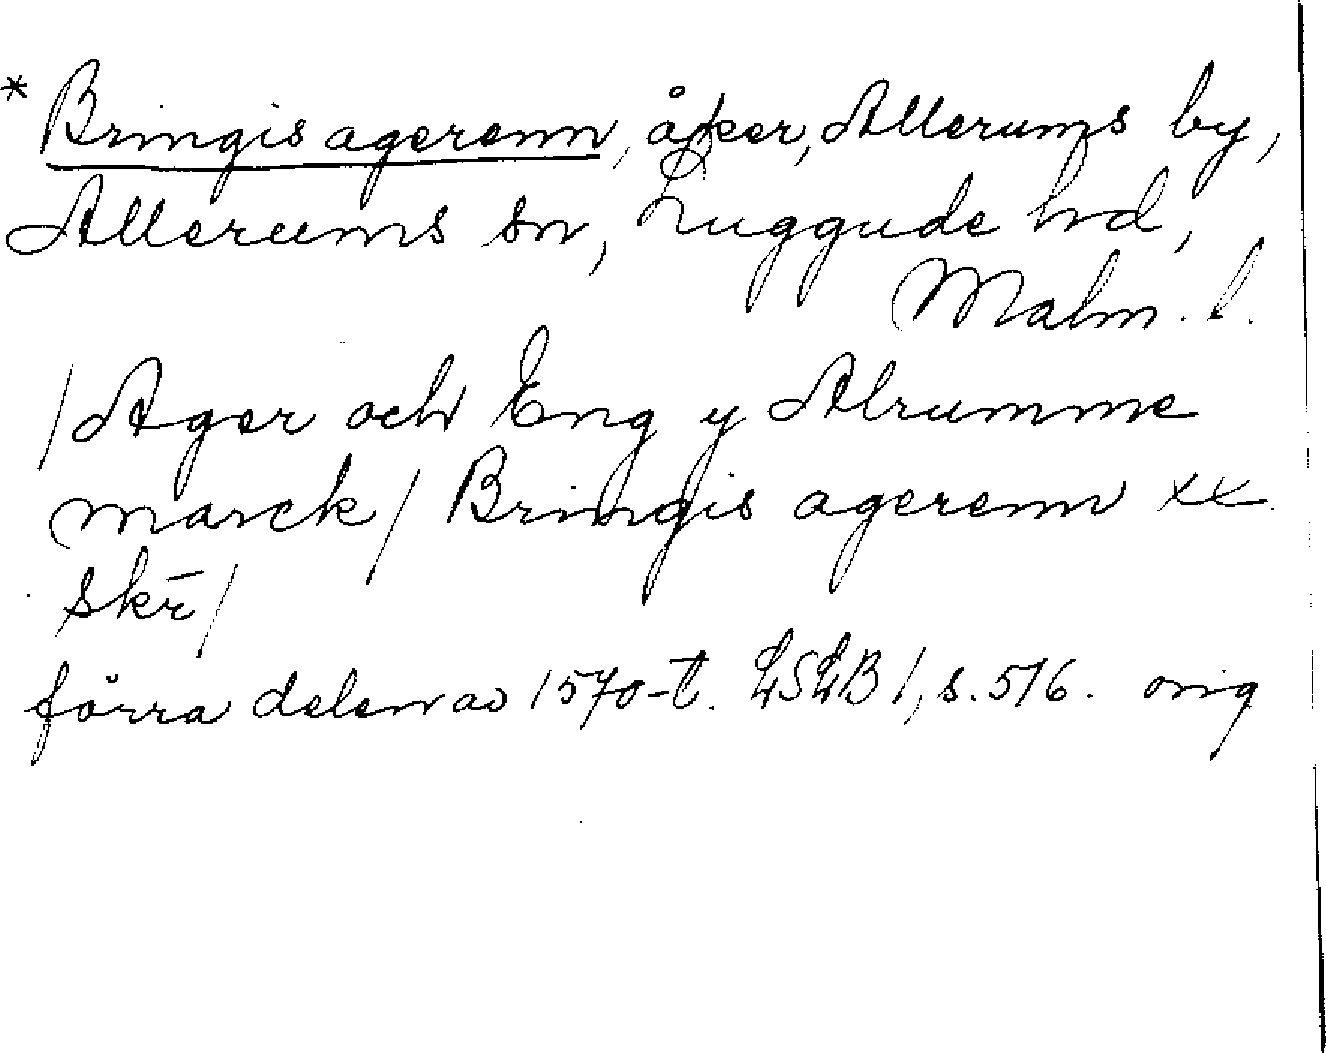 * Bringis agerenn, åker, Allerums by,
Allerums sn, Luggude hd,
Malm. l.
/Ager och Eng y Alrumme
marck/ Bringis agerenn xx
skr̄/
förra delen av 1570-t. LSLB 1, s. 516. orig